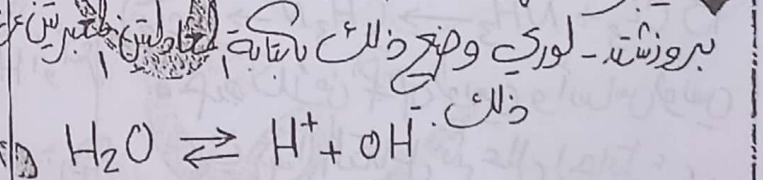 بروزشتد - لوري وضح ذلك بكتابة معادلتين تعبرين عن
ذلك.
H₂O ⇌ H⁺ + OH⁻